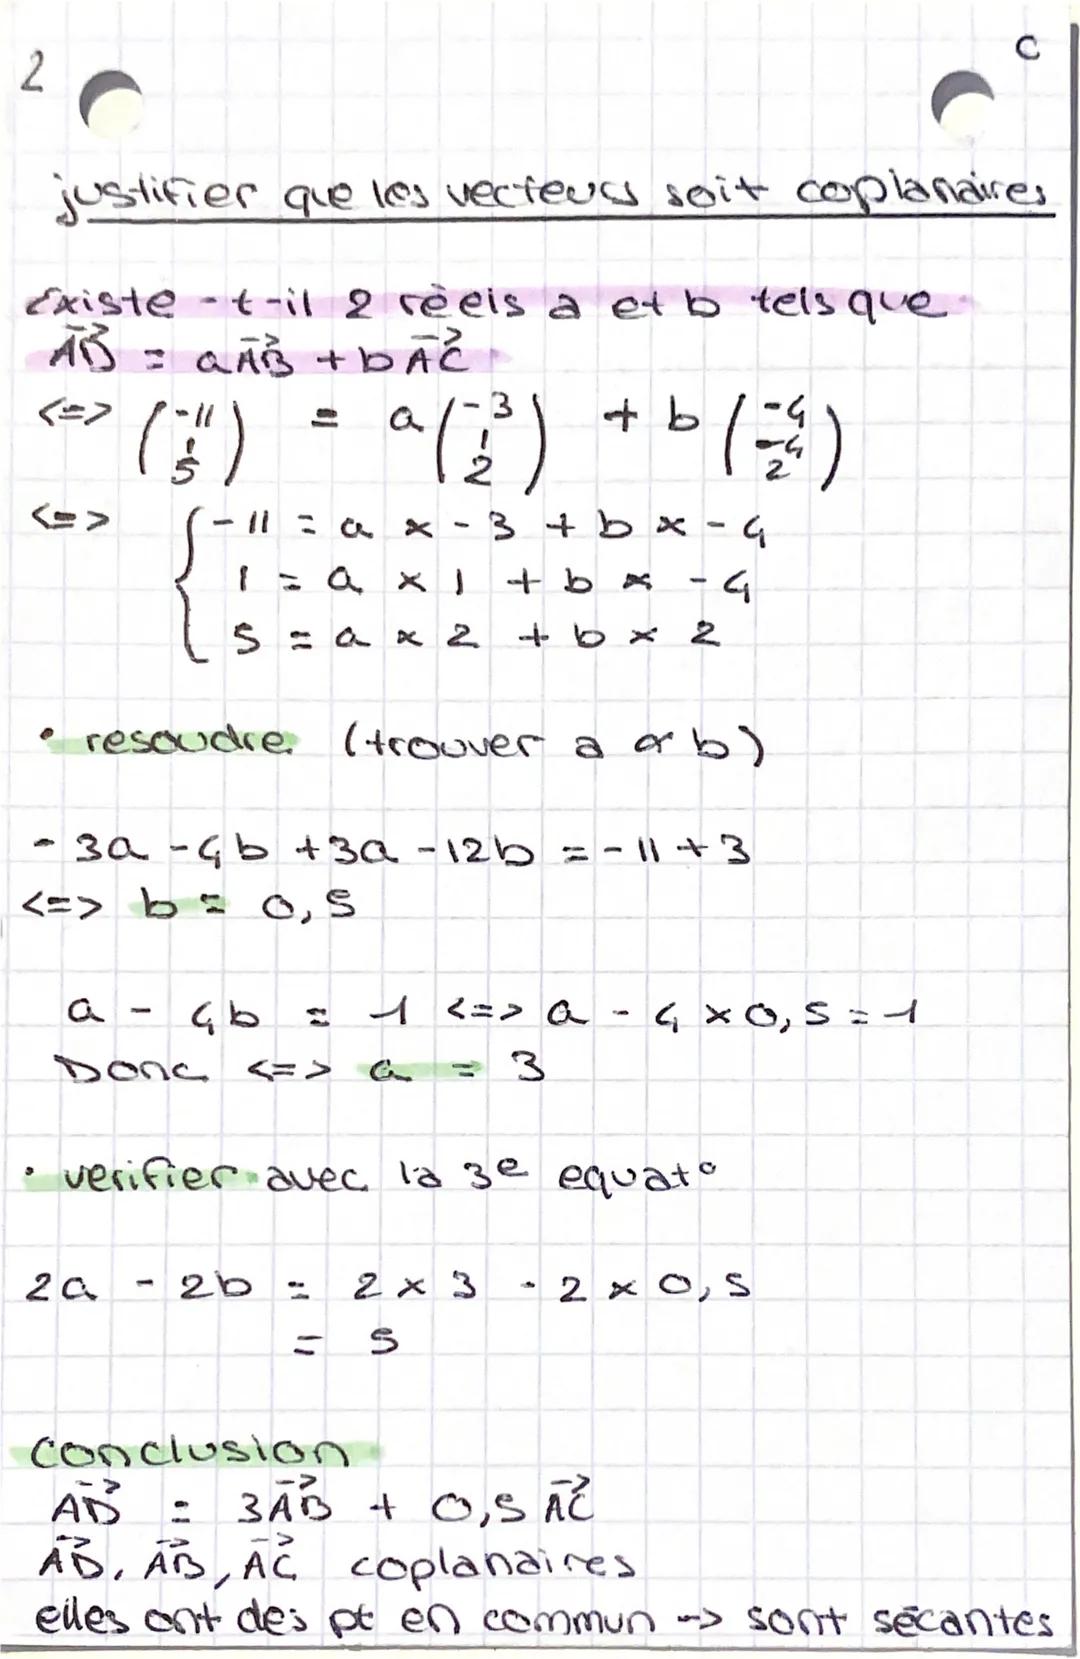 2
C
justifier que les vecteurs soit coplanaires
Existe-t-il 2 réels a et b tels que
→AD = a→AB + b→AC
<=> (-11 1 5) = a(-3 1 2) + b(-4 -4 2)
<=> { -11 = a x -3 + b x -4
1 = a x 1 + b x -4
5 = a x 2 + b x 2
• resoudre (trouver a & b)
-3a -4b +3a -12b = -11 +3
<=> b = 0,5
a - 4b = 1 <=> a - 4 x 0,5 = 1
Donc <=> a = 3
• verifier avec la 3e equat°
2a - 2b = 2 x 3 - 2 x 0,5
= 5
conclusion
→AD = 3→AB + 0,5 →AC
→AD, →AB, →AC coplanaires
elles ont des pt en commun -> sont sécantes